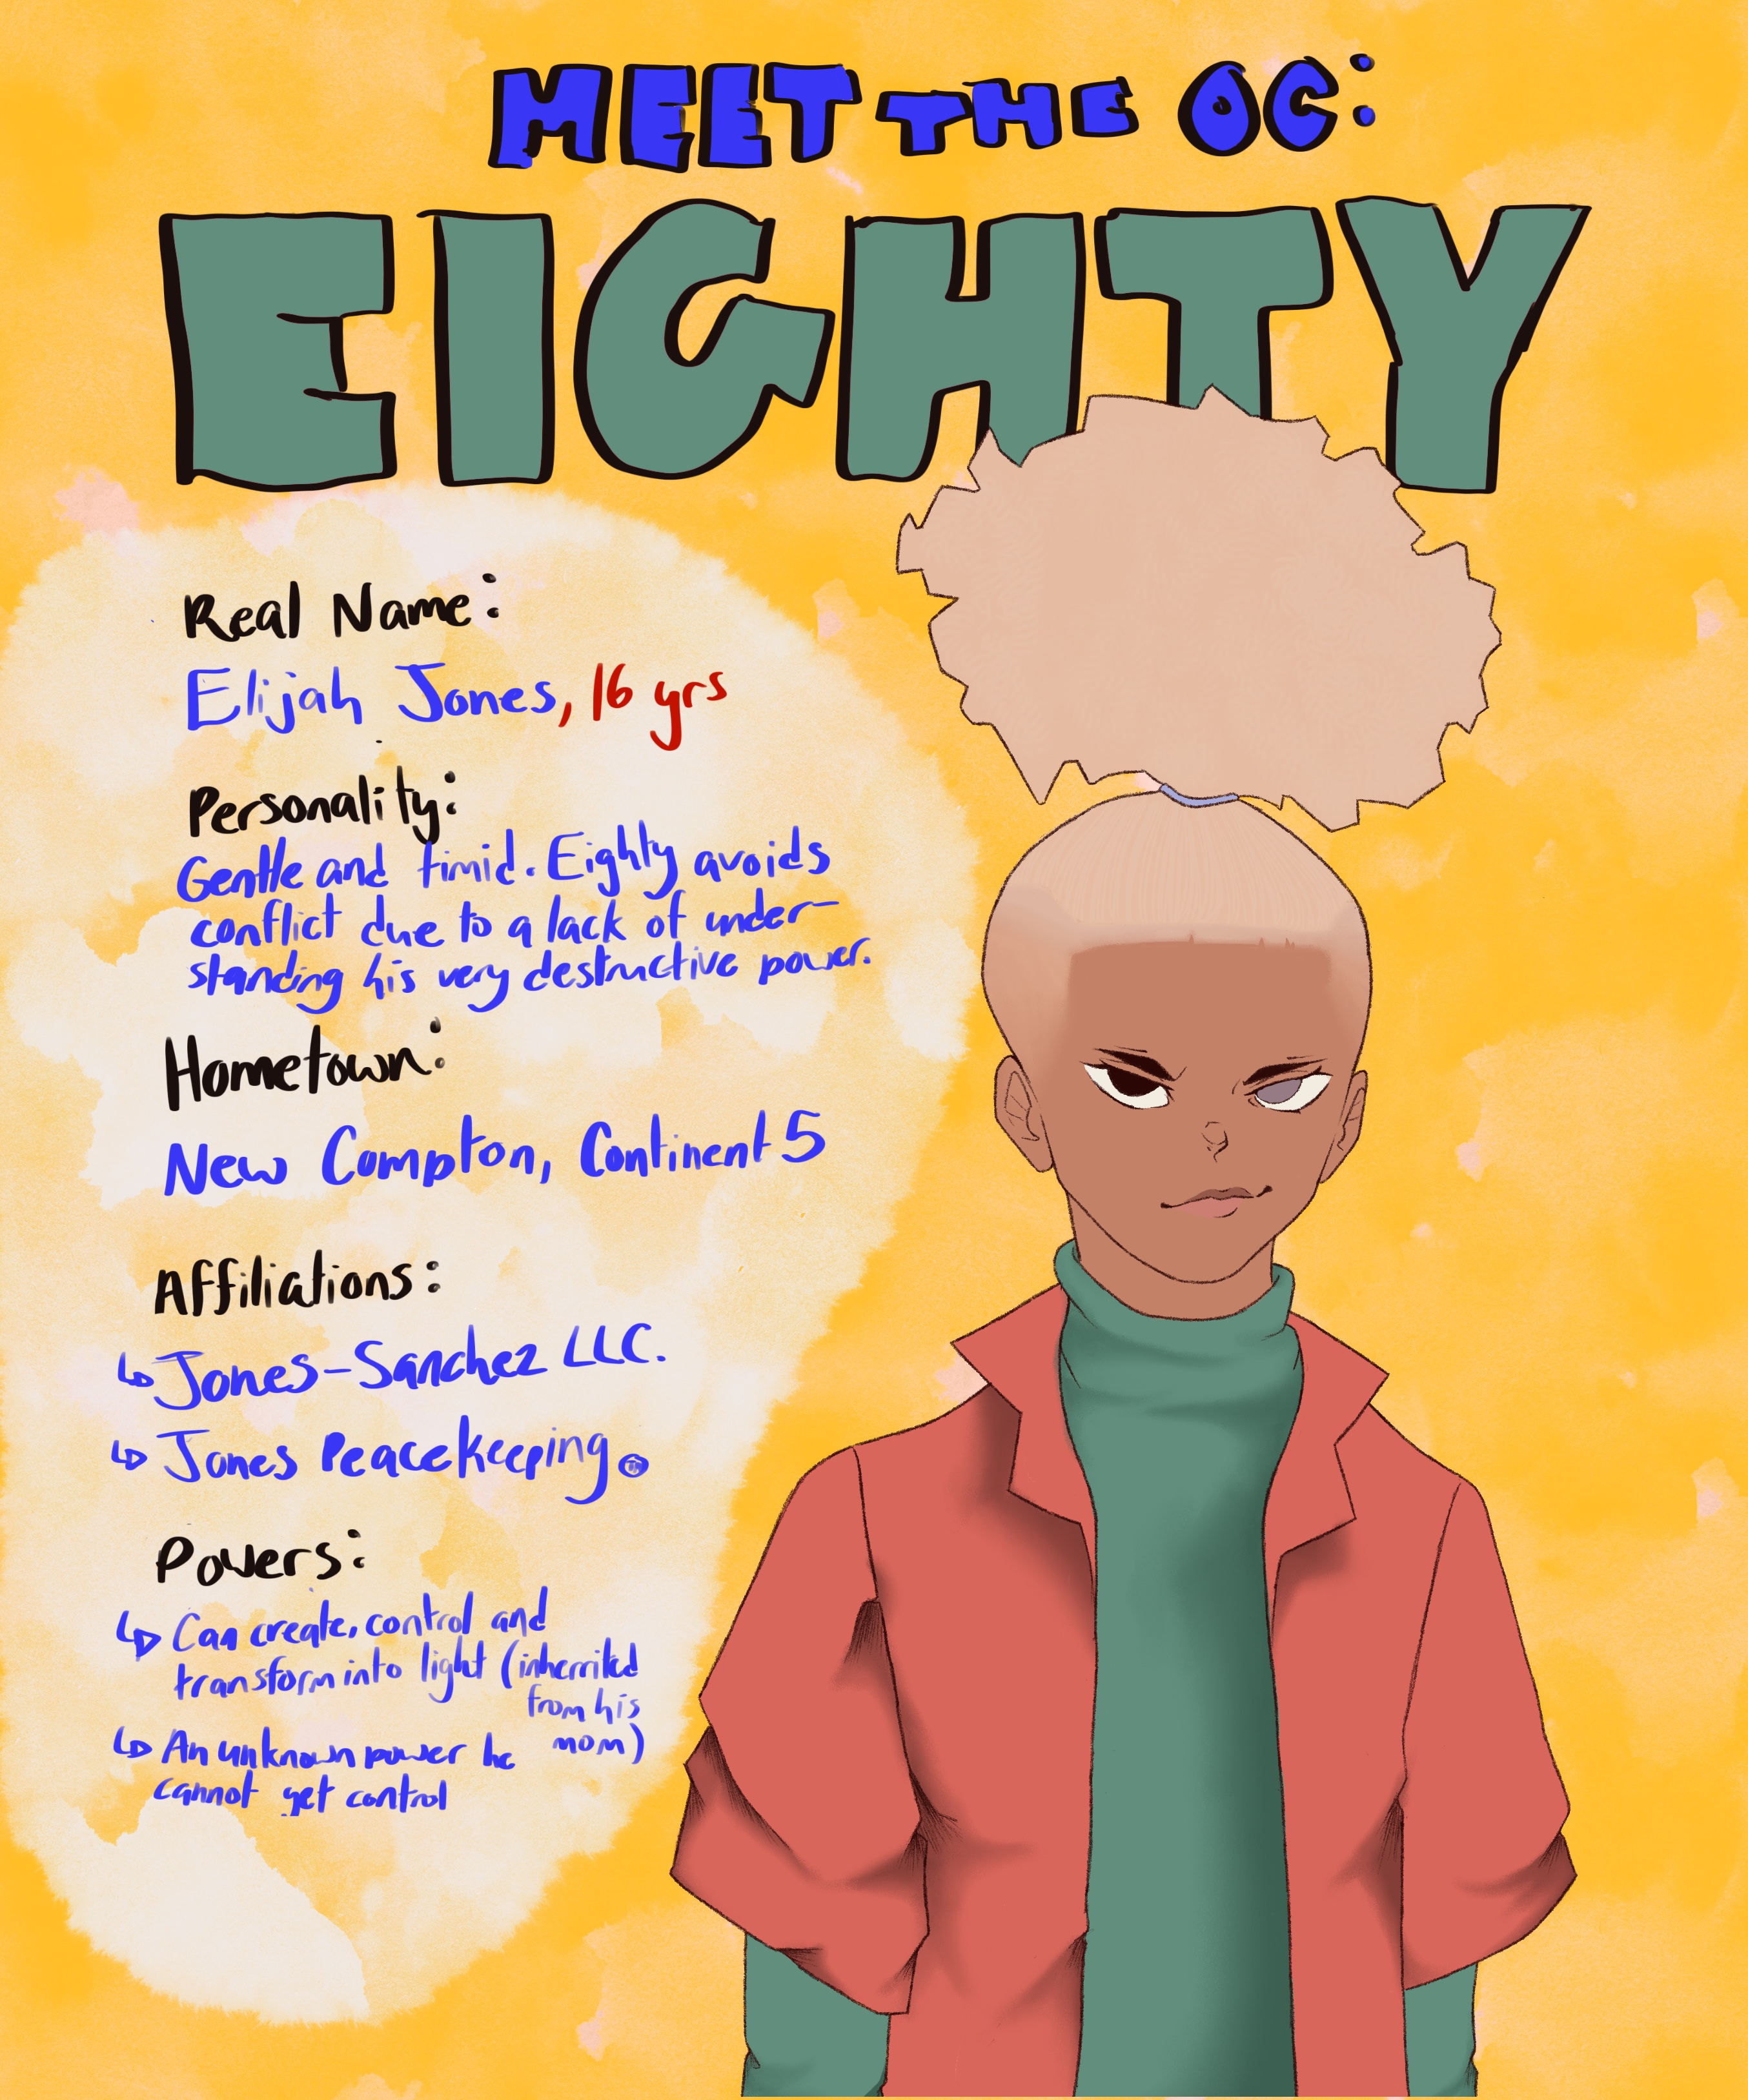 MEET THE OC:
EIGHTY
Real Name:
Elijah Jones, 16 yrs
Personality:
Gentle and timid. Eighty avoids
conflict due to a lack of under-
standing his very destructive power.
Hometown:
New Compton, Continent 5
Affiliations:
↳ Jones-Sanchez LLC.
↳ Jones Peacekeeping
Powers:
↳ Can create, control and
transform into light (inherrited
from his
mom)
↳ An unknown power he
cannot yet control